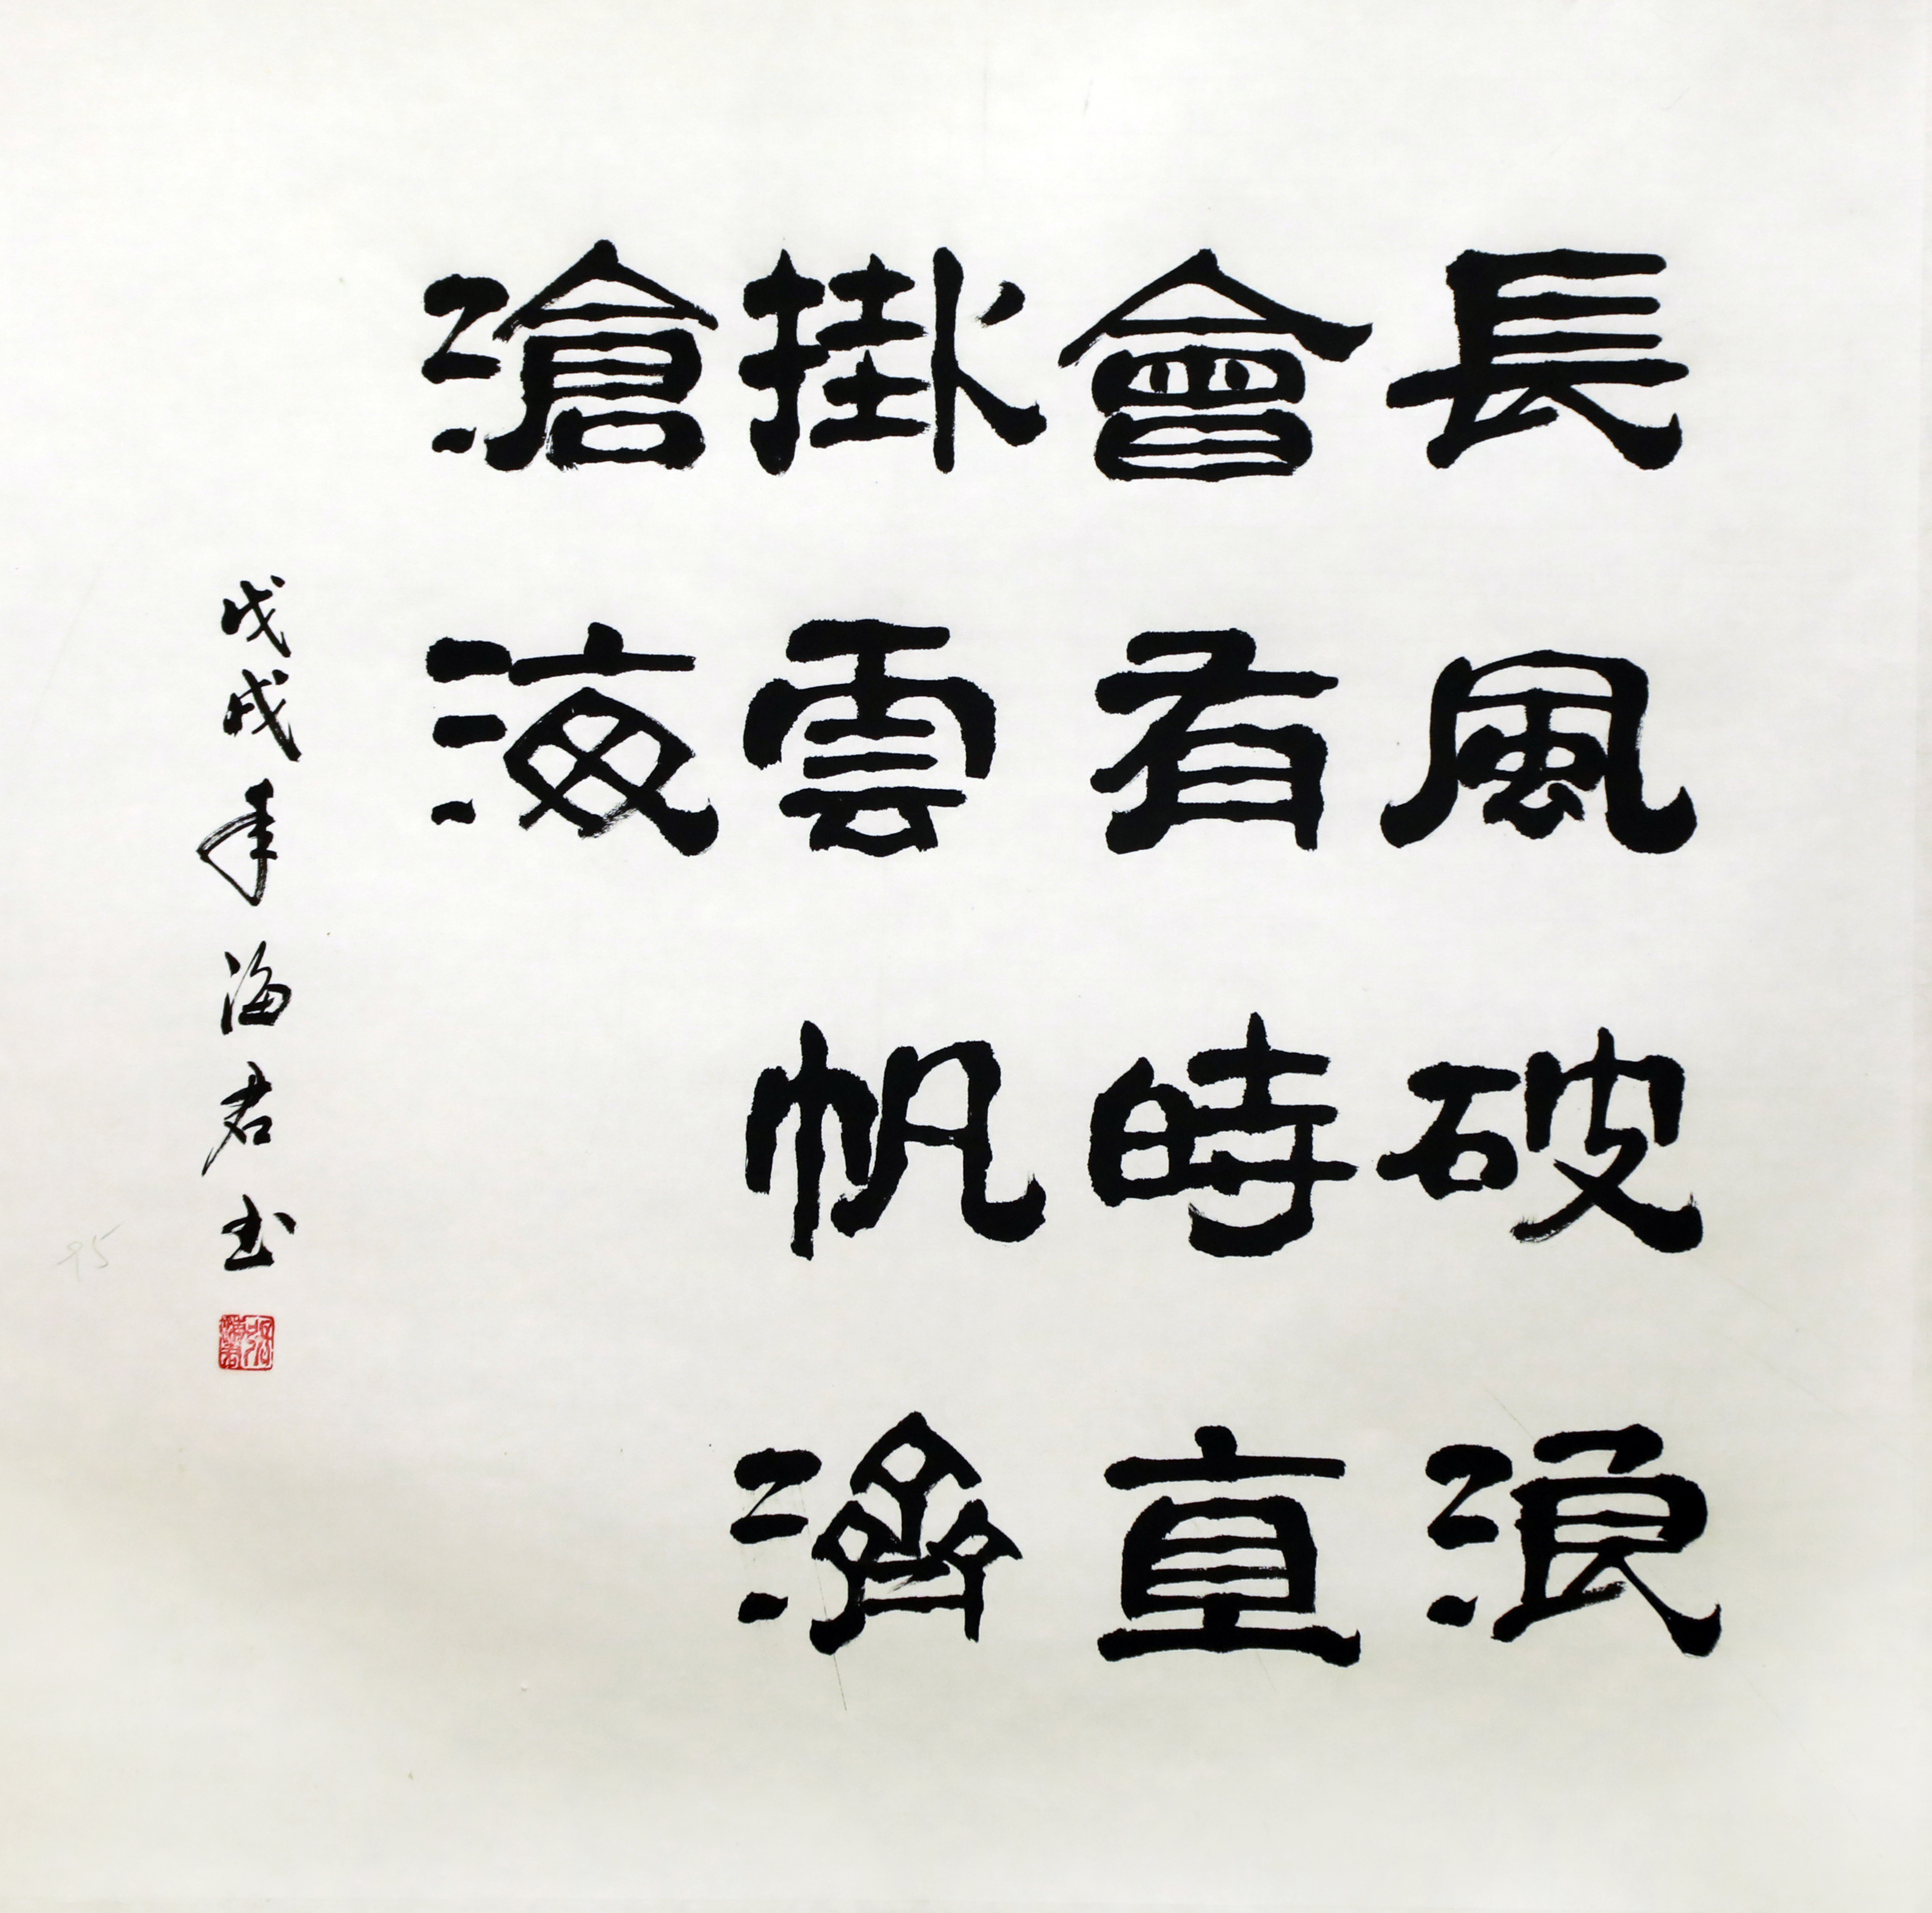 長風破浪
會有時直
掛雲帆濟
滄海
戊戌年海君书
95